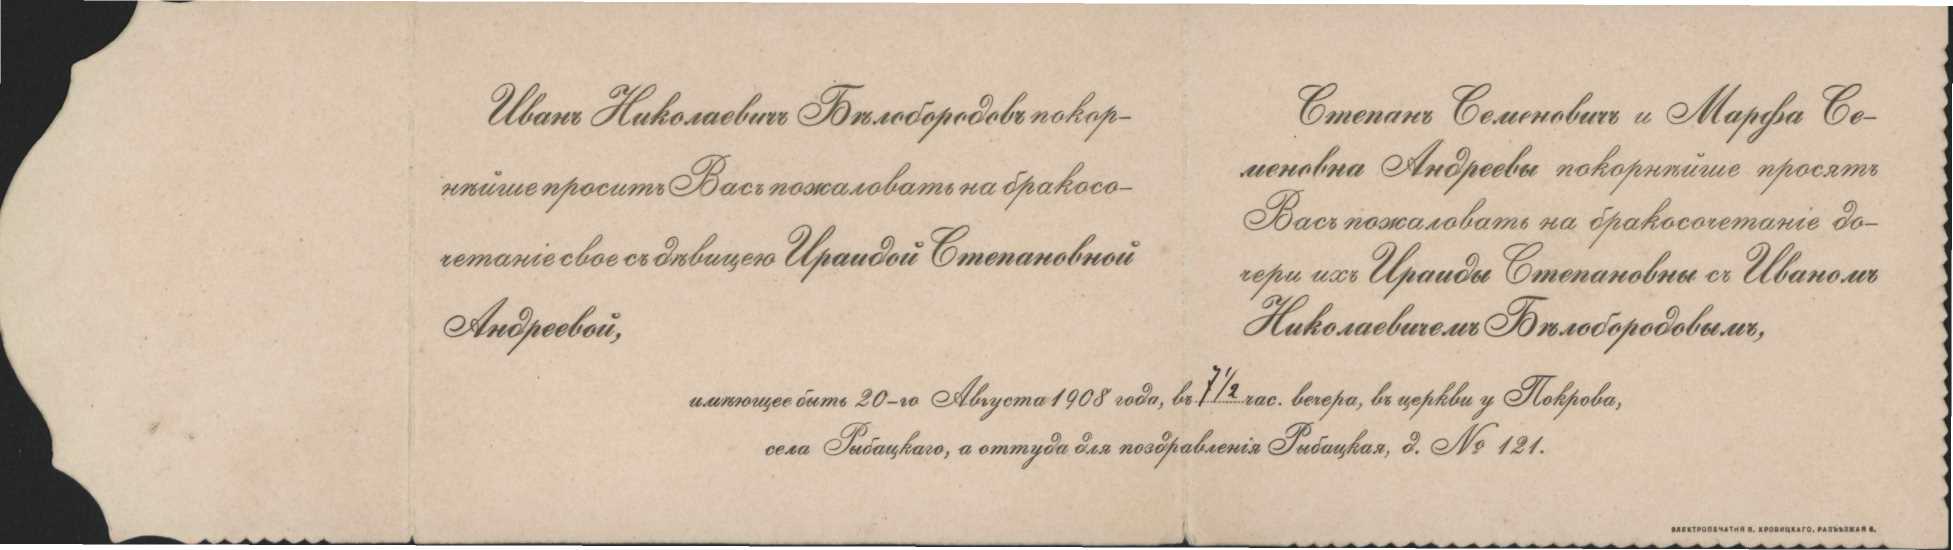 Иванъ Николаевичъ Бѣлобородовъ покор-
нѣйше проситъ Васъ пожаловать на бракосо-
четаніе свое съ дѣвицею Ираидой Степановной
Андреевой,
Степанъ Семеновичъ и Марфа Се-
меновна Андреевы покорнѣйше просятъ
Васъ пожаловать на бракосочетаніе до-
чери ихъ Ираиды Степановны съ Иваномъ
Николаевичемъ Бѣлобородовымъ,
имѣющее быть 20-го Августа 1908 года, въ 7 1/2 час. вечера, въ церкви у Покрова,
села Рыбацкаго, а оттуда для поздравленія Рыбацкая, д. № 121.
ЭЛЕКТРОПЕЧАТНЯ Я. КРОВИЦКАГО, РАЗЪѢЗЖАЯ